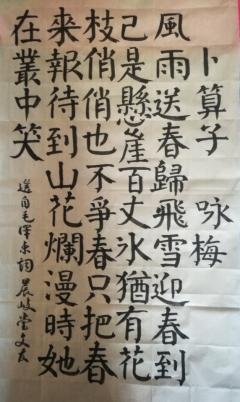 卜算子 咏梅
風雨送春歸飛雪迎春到
已是懸崖百丈冰猶有花
枝俏俏也不爭春只把春
来報待到山花爛漫時她
在叢中笑
選自毛泽东詞